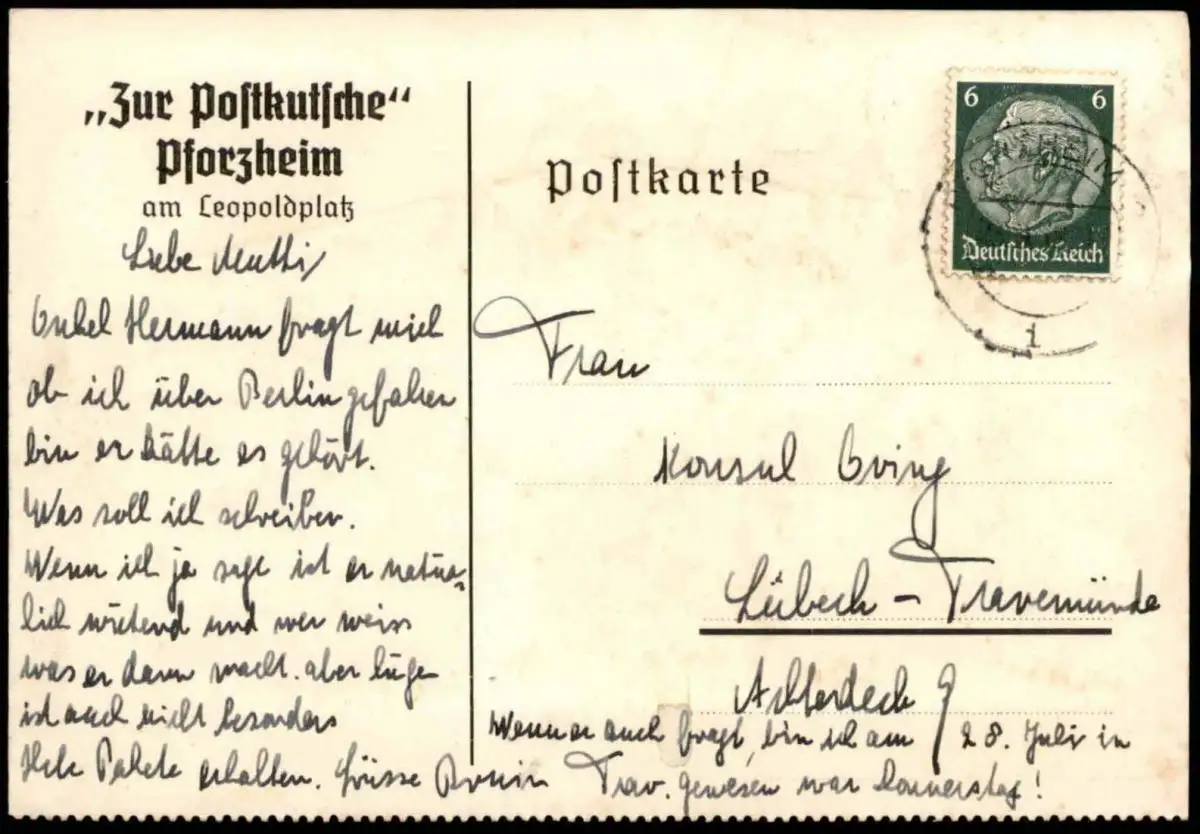 „Zur Postkutsche“
Pforzheim
am Leopoldplatz
Liebe Mutti,
Onkel Hermann fragt mich
ob ich über Berlin gefahren
bin er hätte es gehört.
Was soll ich schreiben.
Wenn ich ja sage ist er natür-
lich wütend und wer weiss
was er dann macht. aber lüge
ist auch nicht besonders
Pakete erhalten. Grüsse
Postkarte
6 6
Deutsches Reich
Frau
Konsul Oving
Lübeck - Travemünde
Achterdeck 9
Wenn er auch fragt, bin ich am 28. Juli in
Trav. gewesen war Donnerstag!